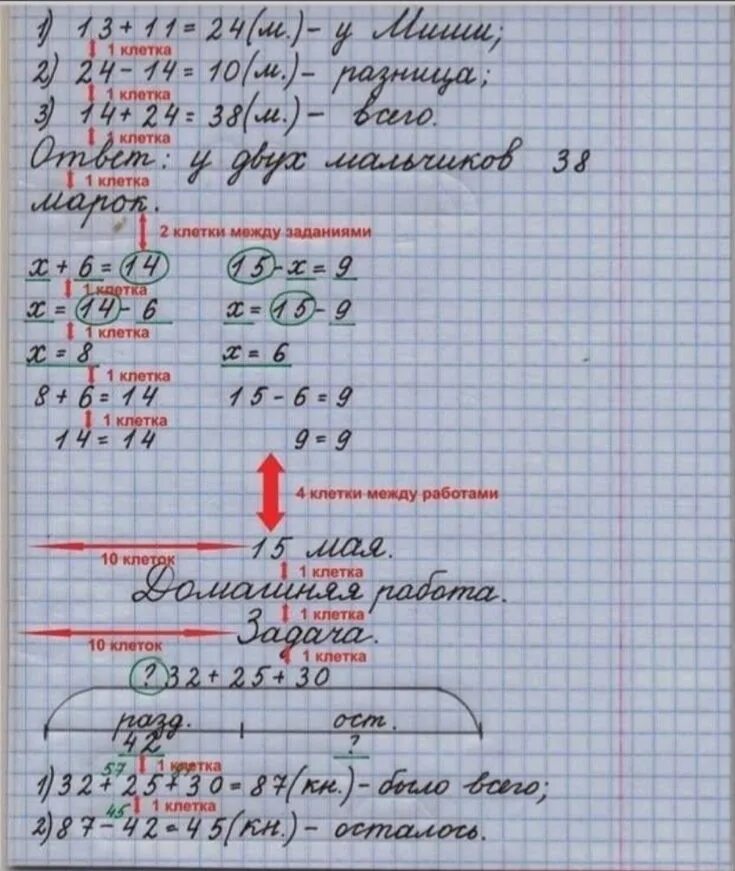 1) 13 + 11 = 24 (м.) - у Миши;
1 клетка
2) 24 - 14 = 10 (м.) - разница;
1 клетка
3) 14 + 24 = 38 (м.) - всего.
1 клетка
Ответ: у двух мальчиков 38
1 клетка
марок.
2 клетки между заданиями
x + 6 = 14 15 - x = 9
1 клетка
x = 14 - 6 x = 15 - 9
1 клетка
x = 8 x = 6
1 клетка
8 + 6 = 14 15 - 6 = 9
1 клетка
14 = 14 9 = 9
4 клетки между работами
10 клеток 15 мая.
1 клетка
Домашняя работа.
1 клетка
10 клеток Задача.
1 клетка
? 32 + 25 + 30
разд. ост.
42 ?
57 1 клетка
1) 32 + 25 + 30 = 87 (кн.) - было всего;
45 1 клетка
2) 87 - 42 = 45 (кн.) - осталось.